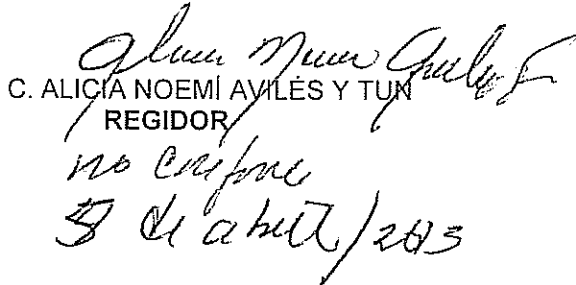 Alicia Noemi Aviles y T
C. ALICIA NOEMÍ AVILÉS Y TUN
REGIDOR
no conforme
8 de abril/2013